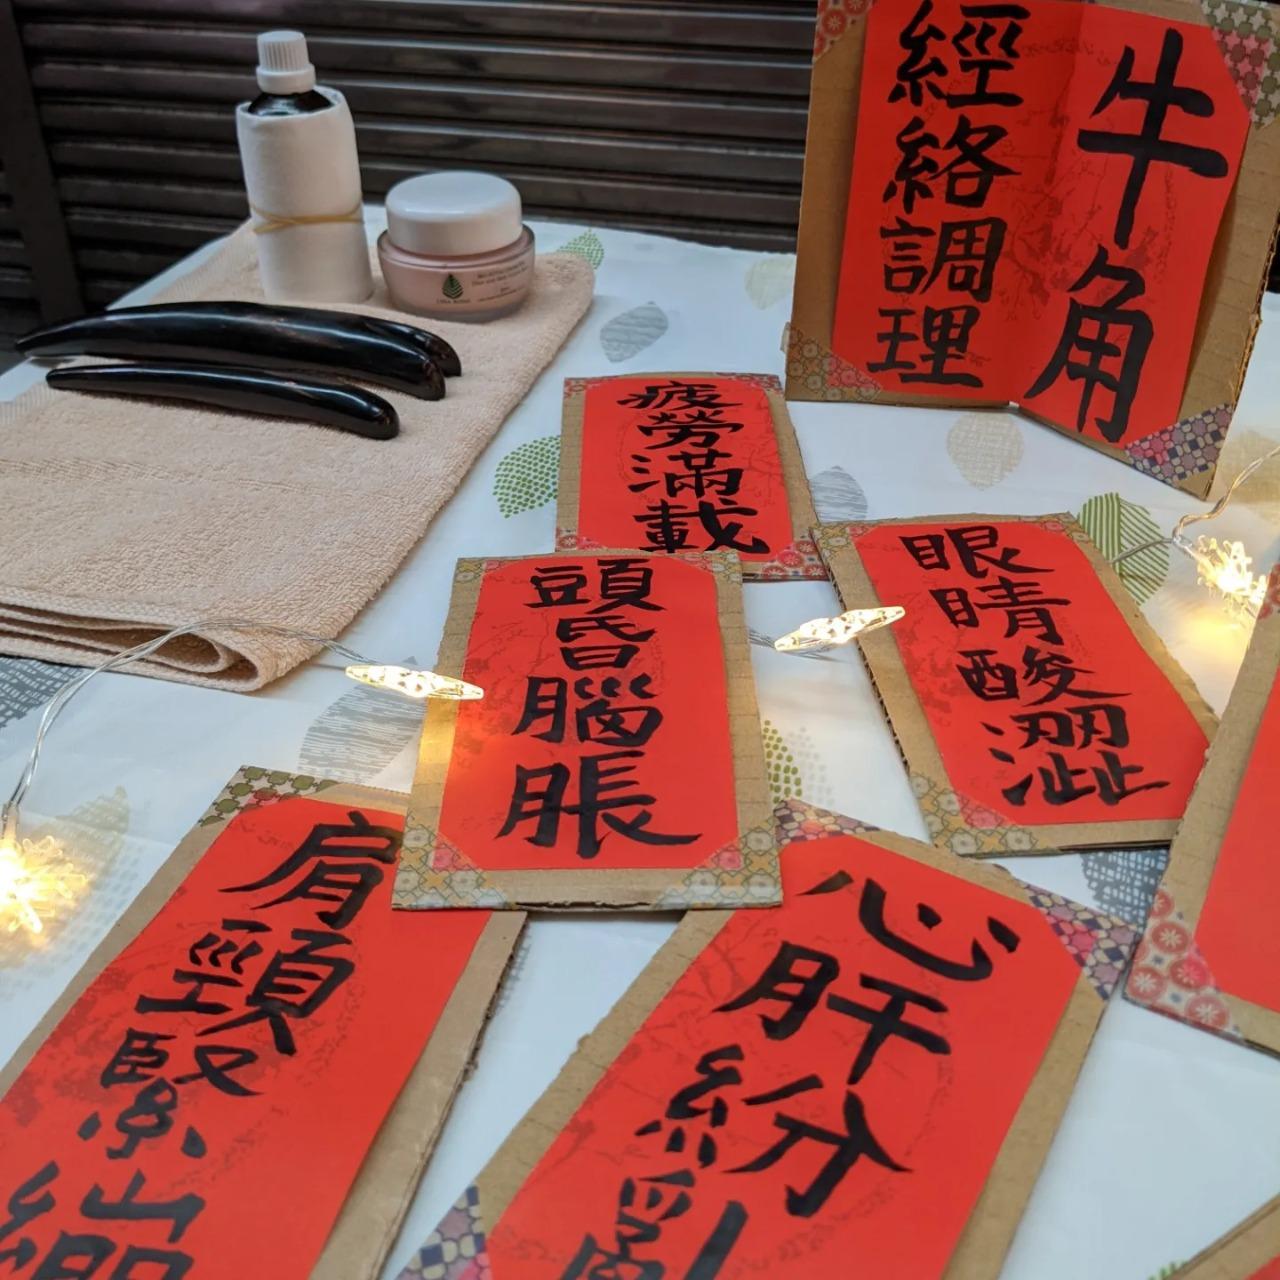 牛角
經絡調理
疲勞滿載
眼睛酸澀
頭昏腦脹
心肝紛亂
肩頸緊繃